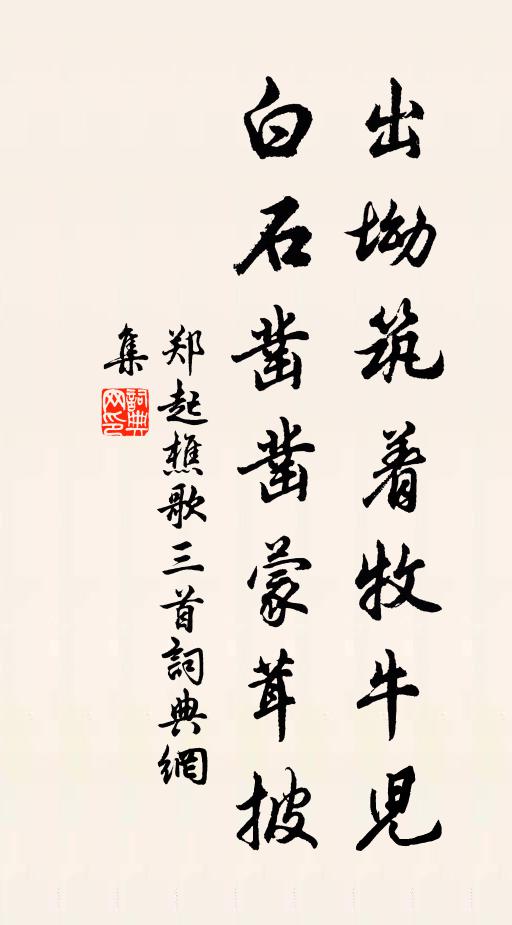 出坳筑着牧牛児
白石凿凿蒙茸披
郑起樵歌三首詞典網
集
詞典
网印